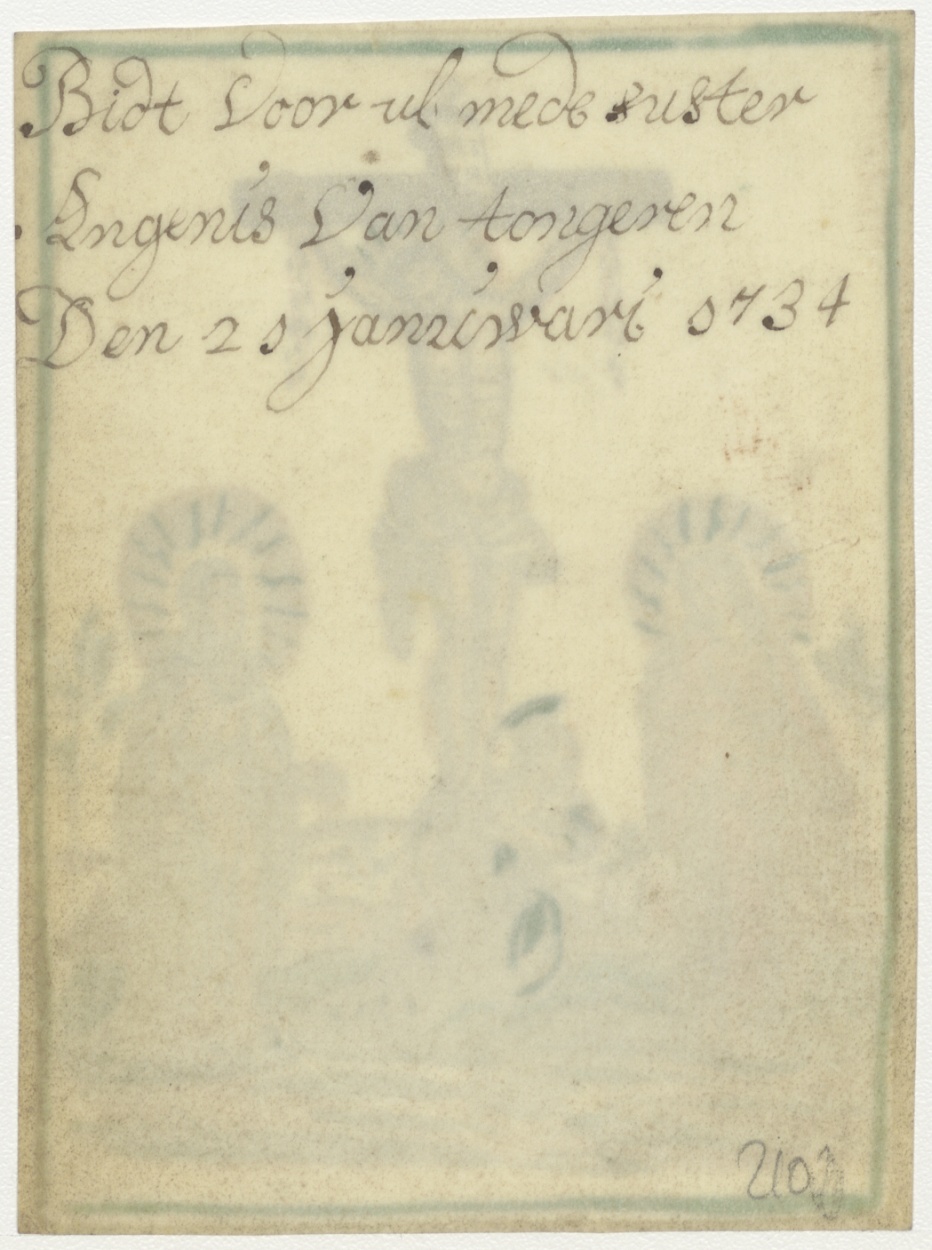 Bidt Voor ul mede suster
Angenis Van tongeren
Den 21 januwari 1734
210